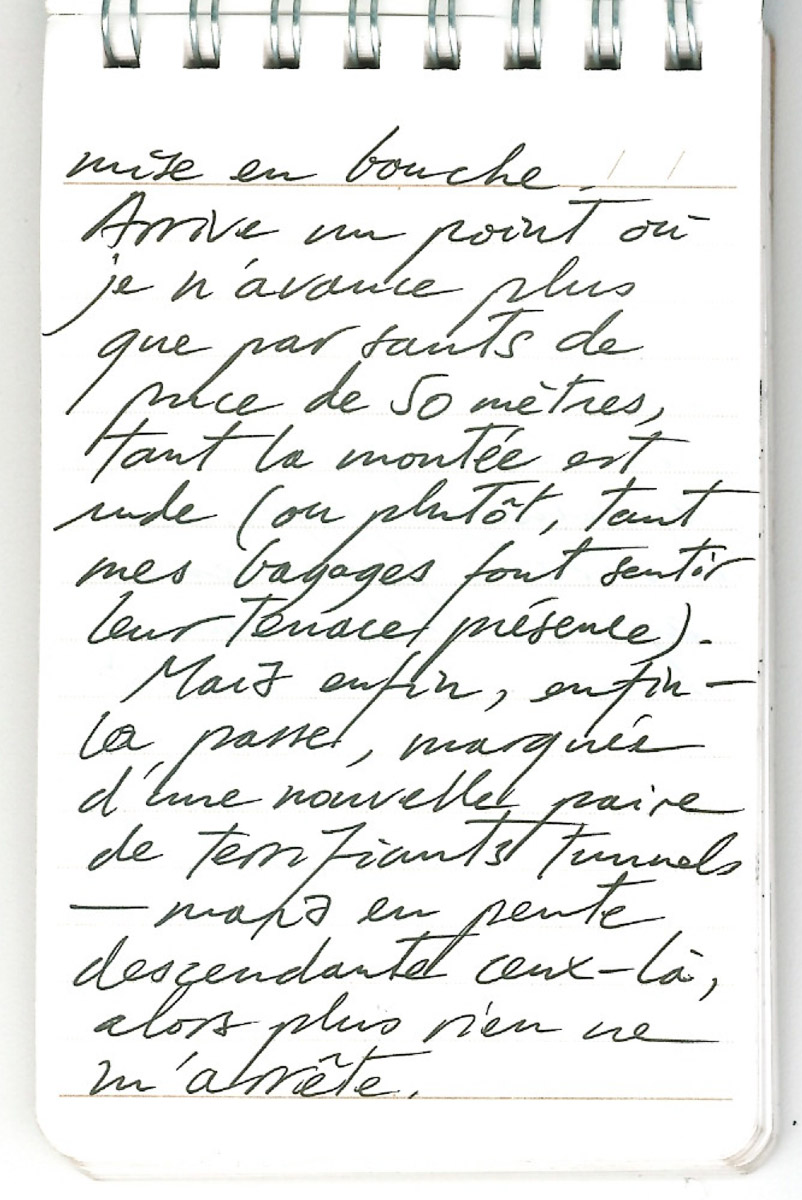 mise en bouche.
Arrive un point où
je n'avance plus
que par sauts de
puce de 50 mètres,
tant la montée est
rude (ou plutôt, tant
mes bagages font sentir
leur tenace présence).
Mais enfin, enfin —
la passe, marquée
d'une nouvelle paire
de terrifiants tunnels
— mais en pente
descendante ceux-là,
alors plus rien ne
m'arrête.